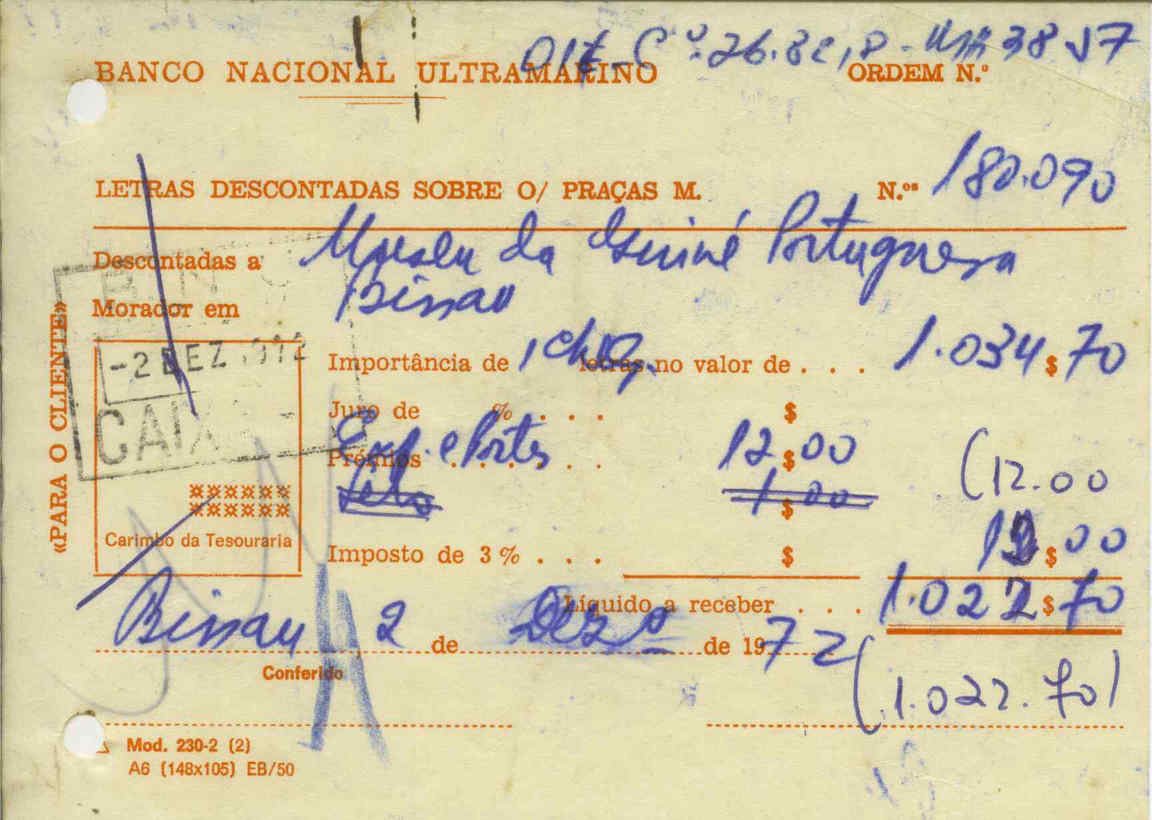 BANCO NACIONAL ULTRAMARINO
ORDEM N.º
LETRAS DESCONTADAS SOBRE O/ PRAÇAS M. N.ºs 180.090
Descontadas a Museu da Guiné Portuguesa
Morador em Bissau
«PARA O CLIENTE»
B.N.U
-2 DEZ 1972
CAIXA
Importância de 1 cheq. letras no valor de . . . 1.034$70
Juro de % . . . $
Exp. e Portes 12$00 (12.00
Prémios . . . . . . .
Selo 1$00
Carimbo da Tesouraria
Imposto de 3% . . . $ 12$00
Líquido a receber . . . 1.022$70
Bissau 2 de Dezº de 1972
(1.022.70)
Conferido
Mod. 230-2 (2)
A6 (148x105) EB/50